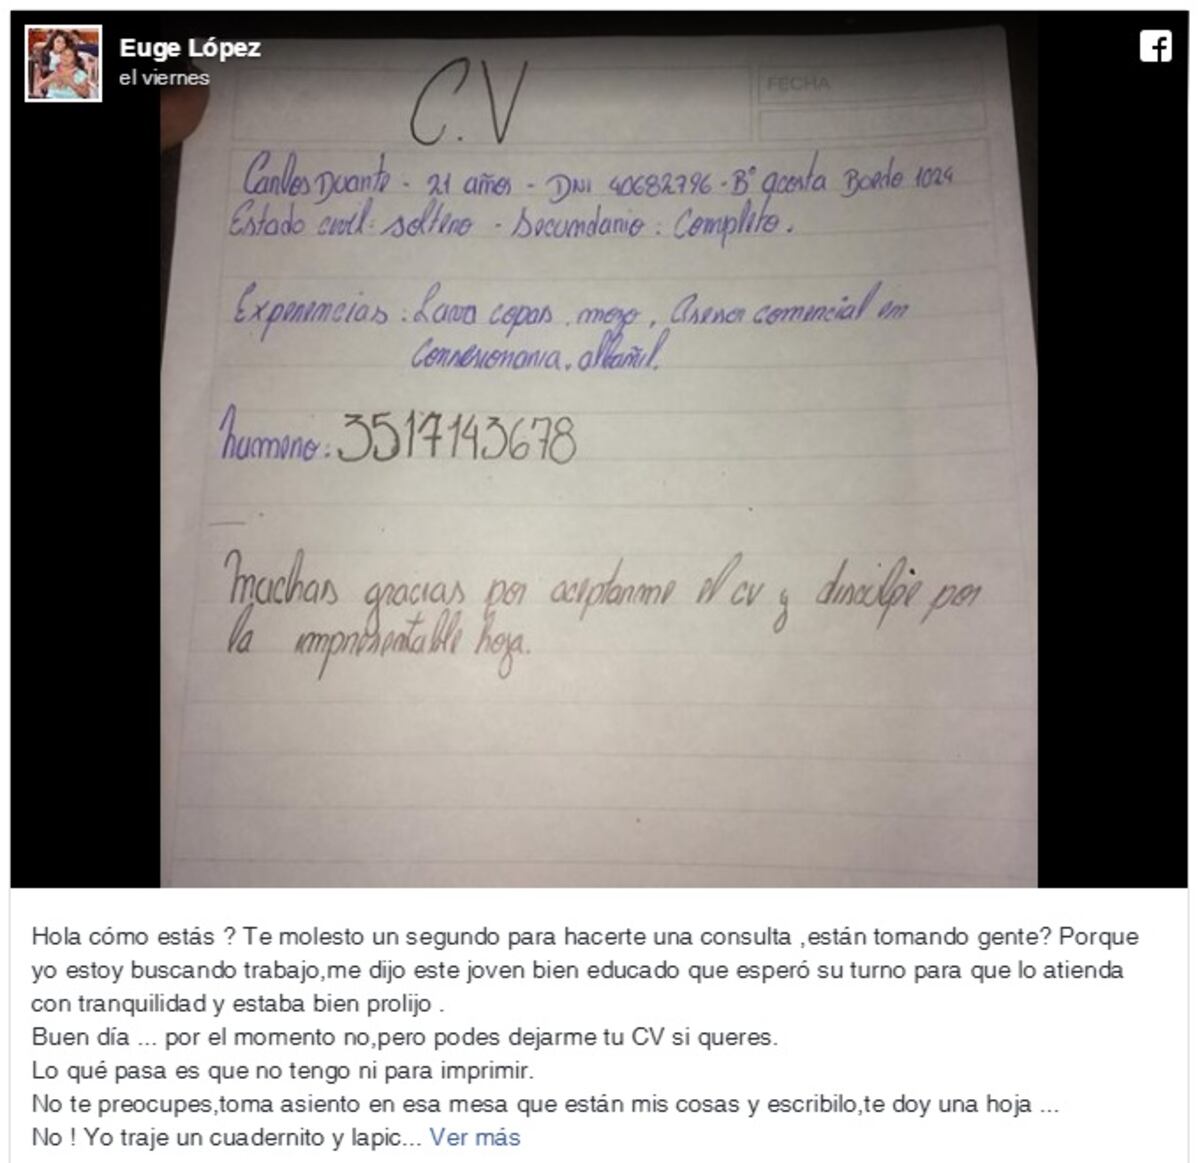 Euge López
el viernes
C.V
FECHA
Carlos Duarte - 21 años - DNI 40682796 - Bº acosta Boedo 1024
Estado civil: soltero - Secundario: Completo.
Experiencias: Lava copas, mozo, Asesor comercial en
Connesionaria, albañil.
humero: 3517143678
Muchas gracias por aceptarme el cv y disculpe por
la impresentable hoja.
Hola cómo estás ? Te molesto un segundo para hacerte una consulta ,están tomando gente? Porque
yo estoy buscando trabajo,me dijo este joven bien educado que esperó su turno para que lo atienda
con tranquilidad y estaba bien prolijo .
Buen día ... por el momento no,pero podes dejarme tu CV si queres.
Lo qué pasa es que no tengo ni para imprimir.
No te preocupes,toma asiento en esa mesa que están mis cosas y escribilo,te doy una hoja ...
No ! Yo traje un cuadernito y lapic... Ver más